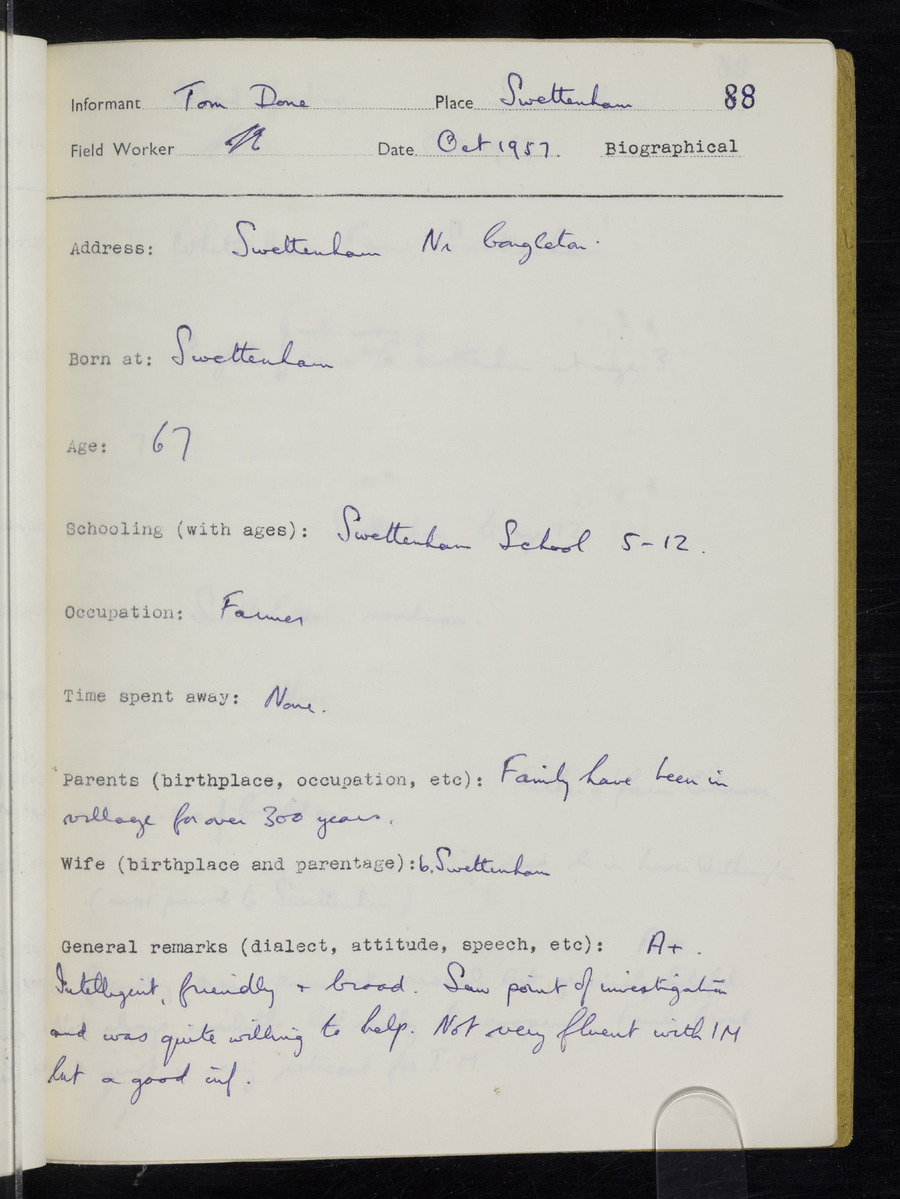 Informant Tom Done Place Swettenham 88
Field Worker Date Oct 1957. Biographical
Address: Swettenham Nr Congleton.
Born at: Swettenham
Age: 67
Schooling (with ages): Swettenham School 5-12.
Occupation: Farmer
Time spent away: None.
Parents (birthplace, occupation, etc): Family have been in
village for over 300 years.
Wife (birthplace and parentage): b. Swettenham
General remarks (dialect, attitude, speech, etc): A+.
Intelligent, friendly + broad. Saw point of investigation
and was quite willing to help. Not very fluent with IM
but a good inf.